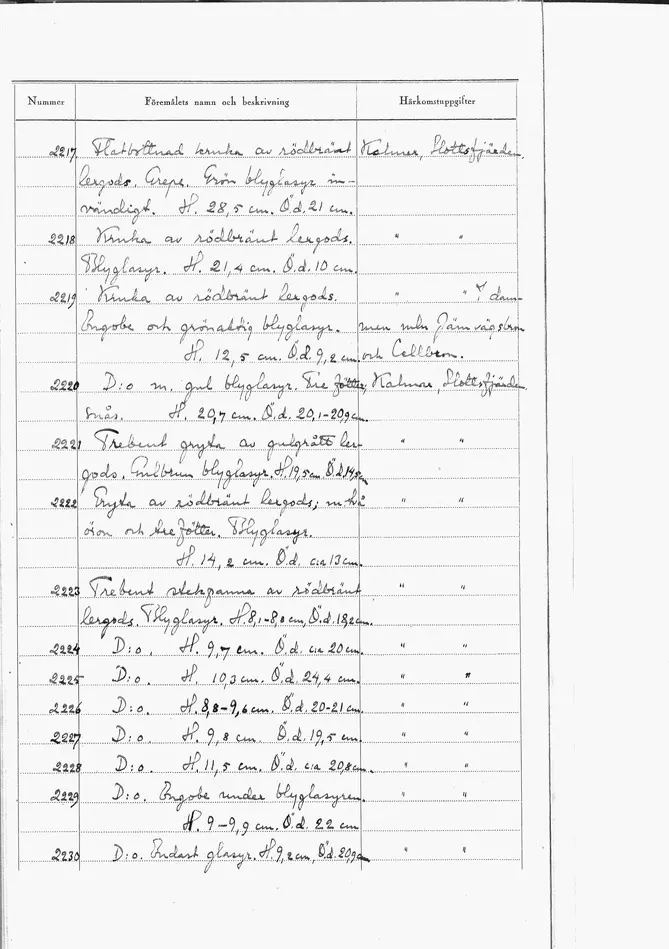 Nummer Föremålets namn och beskrivning Härkomstuppgifter
2217 Flatbottnad kruka av rödbränt Kalmar, Slottsfjärden.
lergods. Grepe. Grön blyglasyr in-
vändigt. H. 28,5 cm. Ö.d. 21 cm.
2218 Kruka av rödbränt lergods. " "
Blyglasyr. H. 21,4 cm. Ö.d. 10 cm.
2219 Kruka av rödbränt lergods. " " dam-
Engobe och grönaktig blyglasyr. men mln Järnvägsbron
H. 12,5 cm. Ö.d. 9,2 cm. och Cellbron.
2220 D:o m. gul blyglasyr. Tre fötter, Kalmar, Slottsfjärden
snås. H. 20,7 cm. Ö.d. 20,1-20,9 cm.
2221 Trebent gryta av gulgrått ler- " "
gods. Gulbrun blyglasyr. H. 19,5 cm. Ö.d. 14,5 cm
2222 Gryta av rödbränt lergods; m. två " "
öron och tre fötter. Blyglasyr.
H. 14,2 cm. Ö.d. c:a 13 cm.
2223 Trebent stekpanna av rödbränt " "
lergods. Blyglasyr. H. 8,1-8,8 cm, Ö.d. 18,2 cm.
2224 D:o. H. 9,7 cm. Ö.d. c:a 20 cm. " "
2225 D:o. H. 10,3 cm. Ö.d. 24,4 cm. " "
2226 D:o. H. 8,8-9,6 cm. Ö.d. 20-21 cm. " "
2227 D:o. H. 9,8 cm. Ö.d. 19,5 cm. " "
2228 D:o. H. 11,5 cm. Ö.d. c:a 20,8 cm. " "
2229 D:o. Engobe under blyglasyren. " "
H. 9-9,9 cm. Ö.d. 22 cm
2230 D:o. Endast glasyr. H. 9,2 cm, Ö.d. 20,9 cm " "